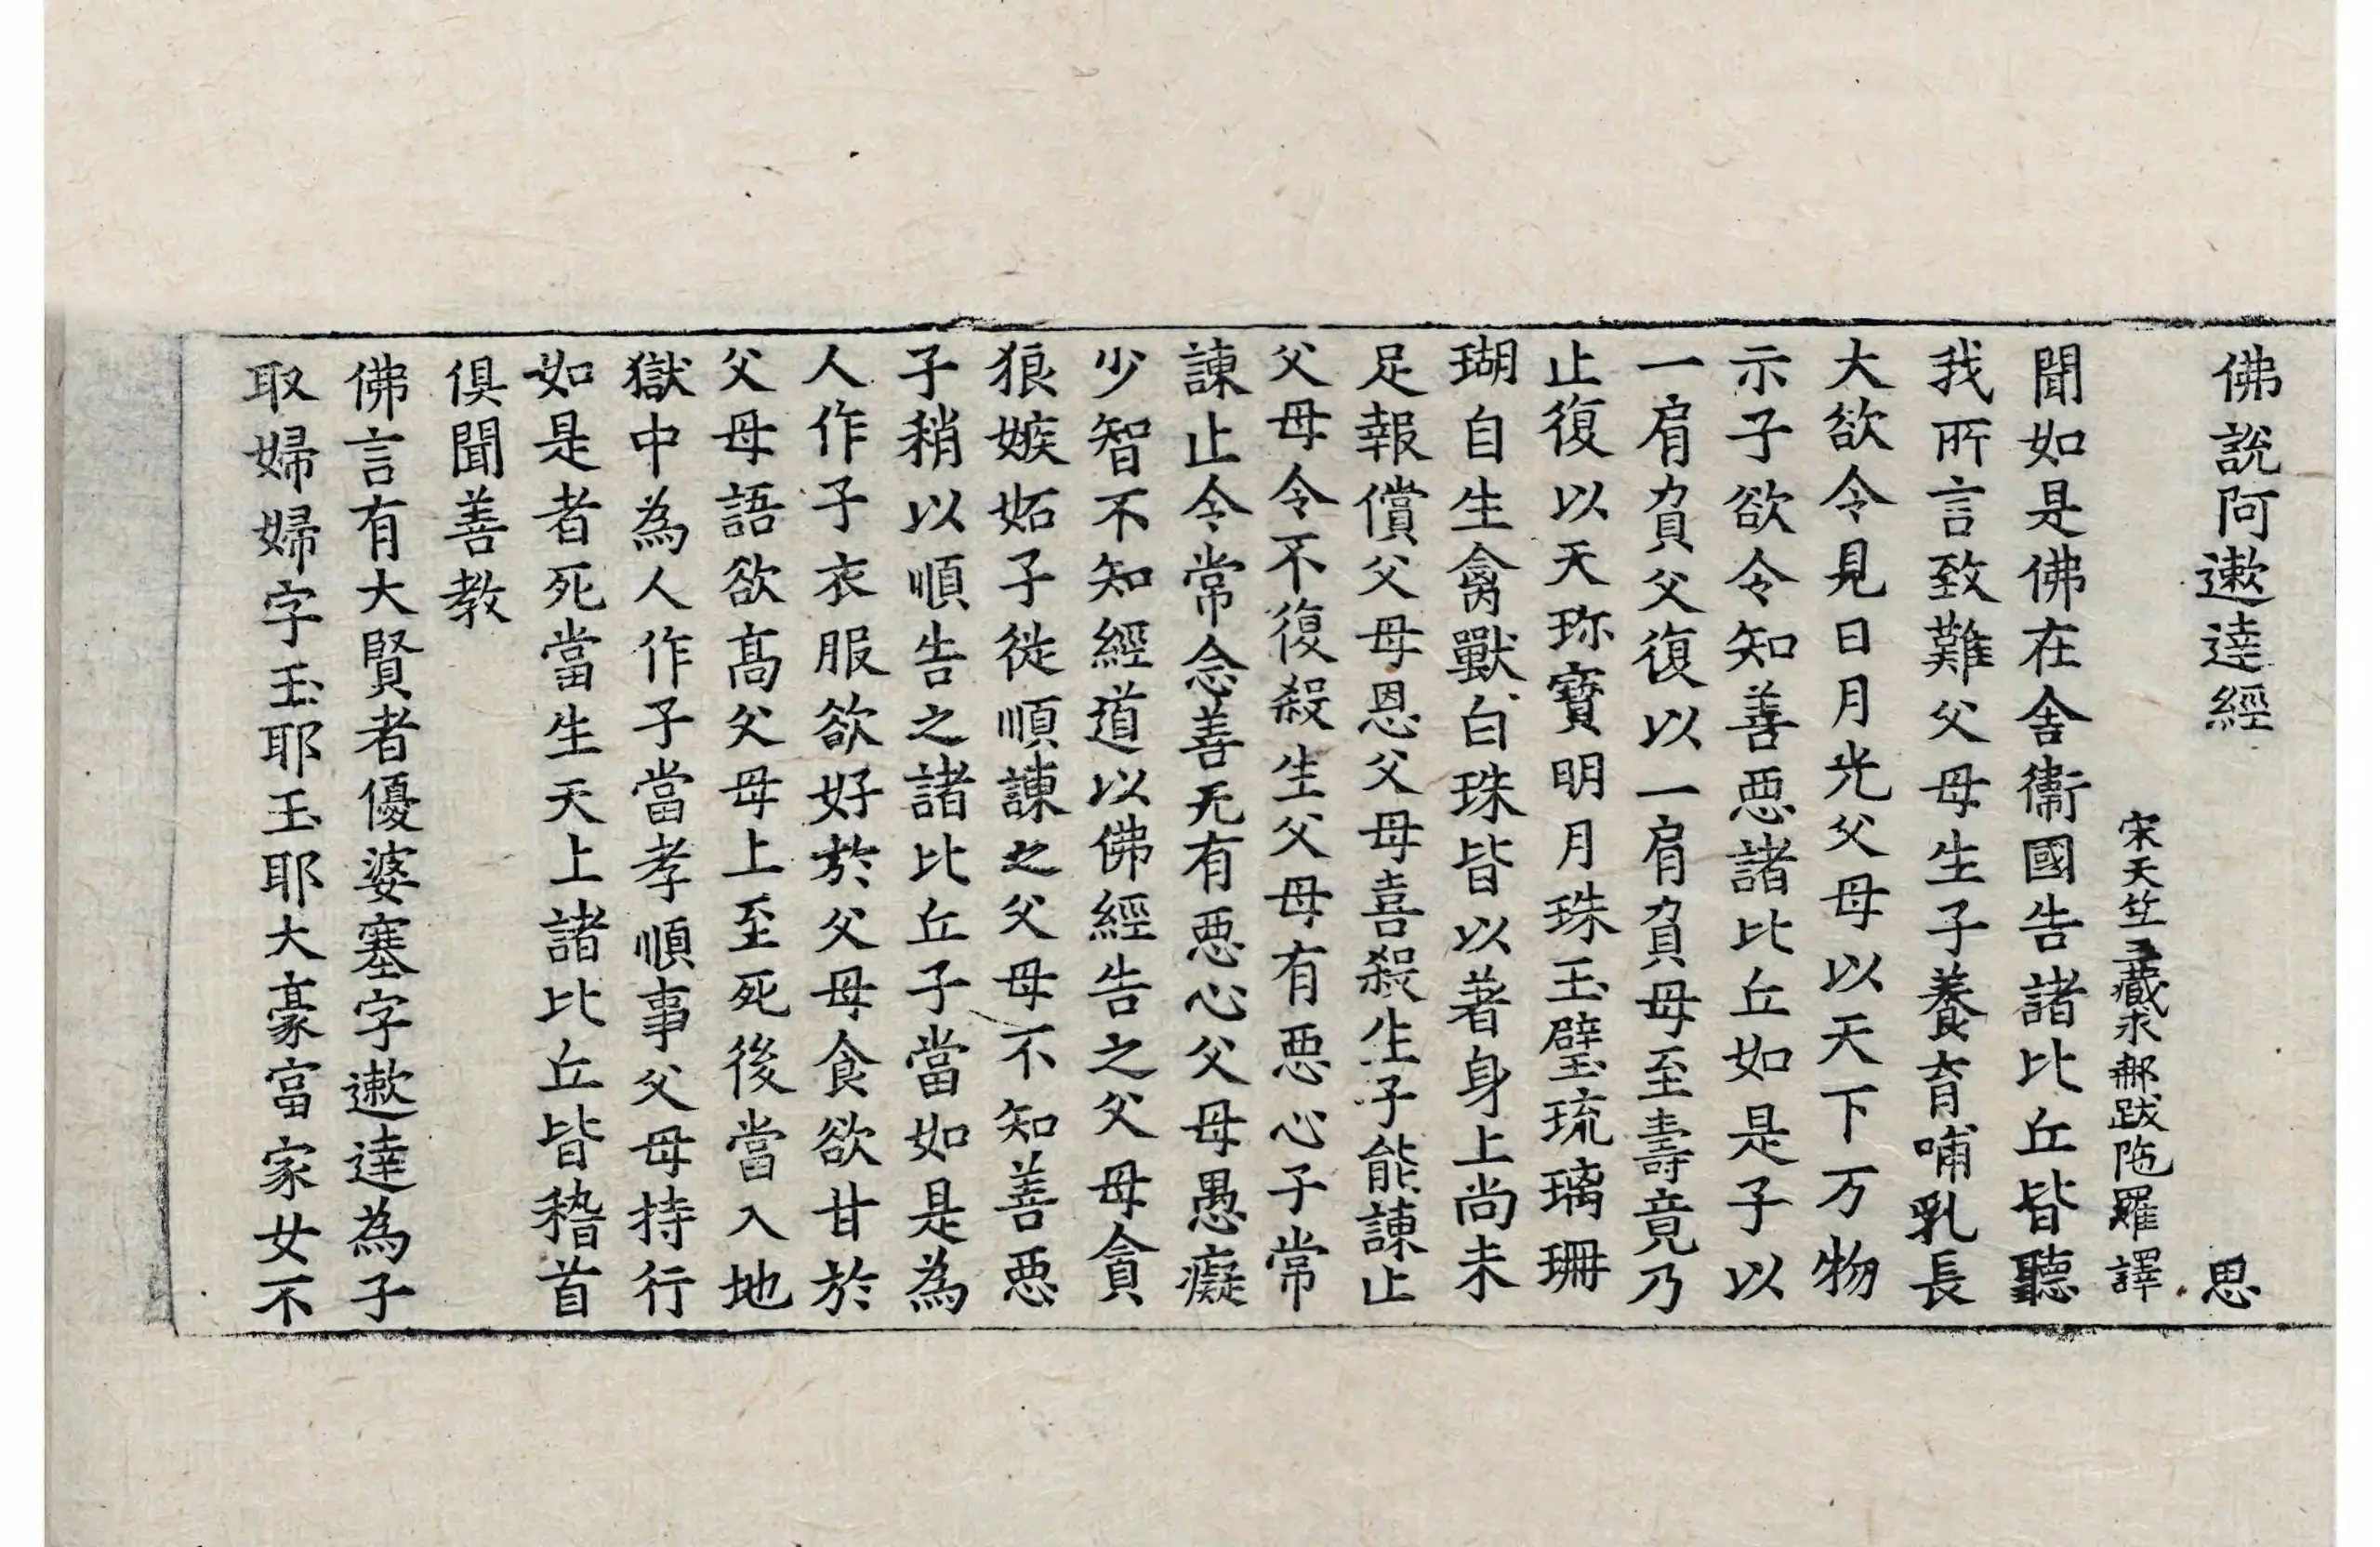 佛說阿遬達經 思
宋天竺三藏求那跋陁羅譯
聞如是佛在舎衞國告諸比丘皆聽
我所言致難父母生子養育哺乳長
大欲令見日月光父母以天下万物
示子欲令知善惡諸比丘如是子以
一肩負父復以一肩負母至壽竟乃
止復以天珎寶明月珠玉璧琉璃珊
瑚自生禽獸白珠皆以著身上尚未
足報償父母恩父母喜殺生子能諫止
父母令不復殺生父母有惡心子常
諫止令常念善无有惡心父母愚癡
少智不知經道以佛經告之父母貪
狼嫉妬子從順諫之父母不知善惡
子稍以順告之諸比丘子當如是為
人作子衣服欲好於父母食欲甘於
父母語欲髙父母上至死後當入地
獄中為人作子當孝順事父母持行
如是者死當生天上諸比丘皆稽首
俱聞善教
佛言有大賢者優婆塞字遬達為子
取婦婦字玉耶玉耶大豪富家女不